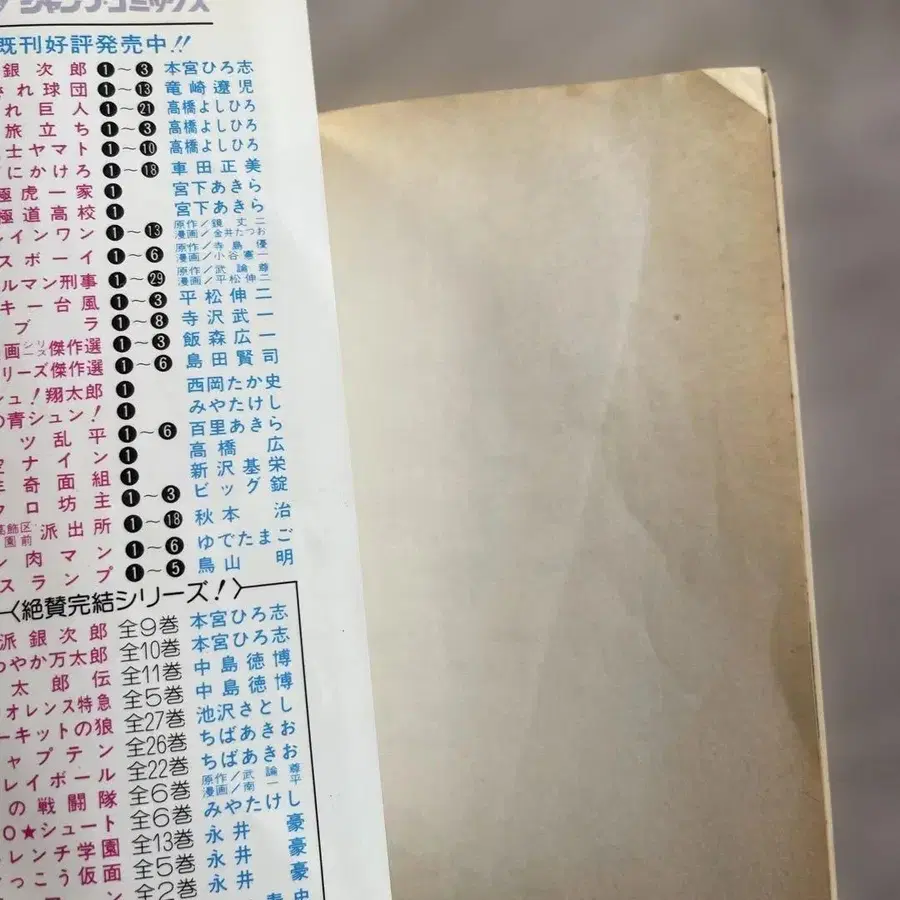 ジャンプ・コミックス
既刊好評発売中!!
銀次郎 1〜3 本宮ひろ志
され球団 1〜13 竜崎遼児
れ巨人 1〜21 高橋よしひろ
旅立ち 1〜3 高橋よしひろ
士ヤマト 1〜10 高橋よしひろ
にかけろ 1〜18 車田正美
極虎一家 1 宮下あきら
極道高校 1 宮下あきら
レインワン 1〜13 原作/鏡丈二 漫画/金井たつお
スボーイ 1〜6 原作/寺島優 漫画/小谷憲一
ルマン刑事 1〜29 原作/武論尊 漫画/平松伸二
キー台風 1〜3 平松伸二
ブラ 1〜8 寺沢武一
画シリーズ傑作選 1〜3 飯森広一
リーズ傑作選 1〜6 島田賢司
シュ!翔太郎 1 西岡たか史
の青シュン! 1 みやたけし
ツ乱平 1〜6 百里あきら
ナイン 1 高橋広
奇面組 1 新沢基栄
クロ坊主 1〜3 ビッグ錠
葛飾区 園前 派出所 1〜18 秋本治
ン肉マン 1〜6 ゆでたまご
スランプ 1〜5 鳥山明
〈絶賛完結シリーズ!〉
派銀次郎 全9巻 本宮ひろ志
わやか万太郎 全10巻 本宮ひろ志
太郎伝 全11巻 中島徳博
オレンス特急 全5巻 中島徳博
ーキットの狼 全27巻 池沢さとし
ャプテン 全26巻 ちばあきお
レイボール 全22巻 ちばあきお
の戦闘隊 全6巻 原作/武論尊 漫画/南一平
O★シュート 全6巻 みやたけし
レンチ学園 全13巻 永井豪
っこう仮面 全5巻 永井豪
全2巻 永井豪